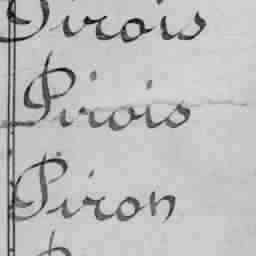 Pirois
Pirois
Piron